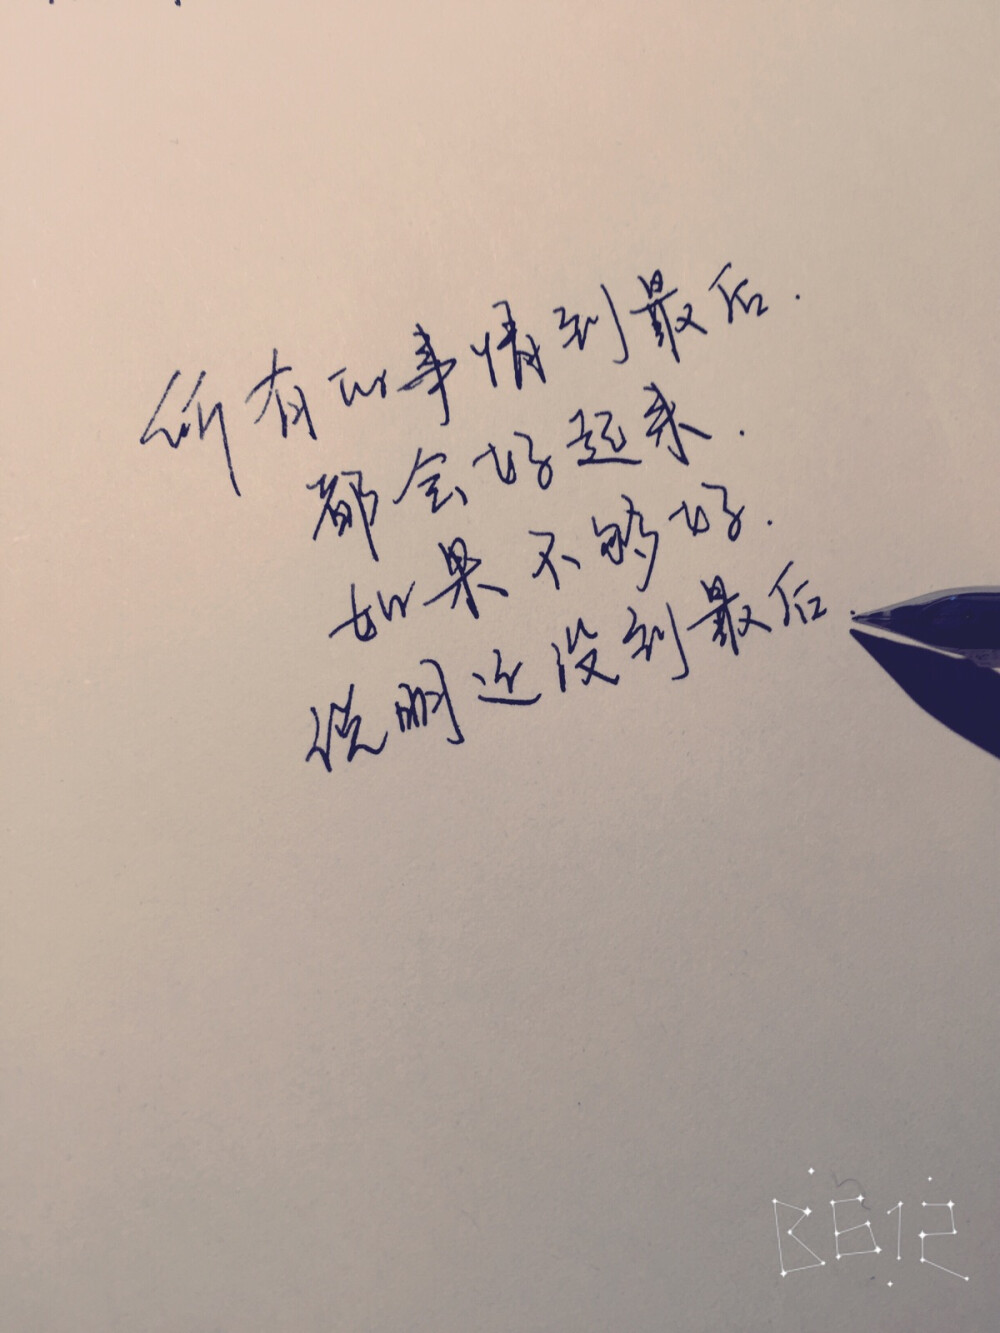 所有的事情到最后.
都会好起来.
如果不够好.
说明还没到最后.
B612